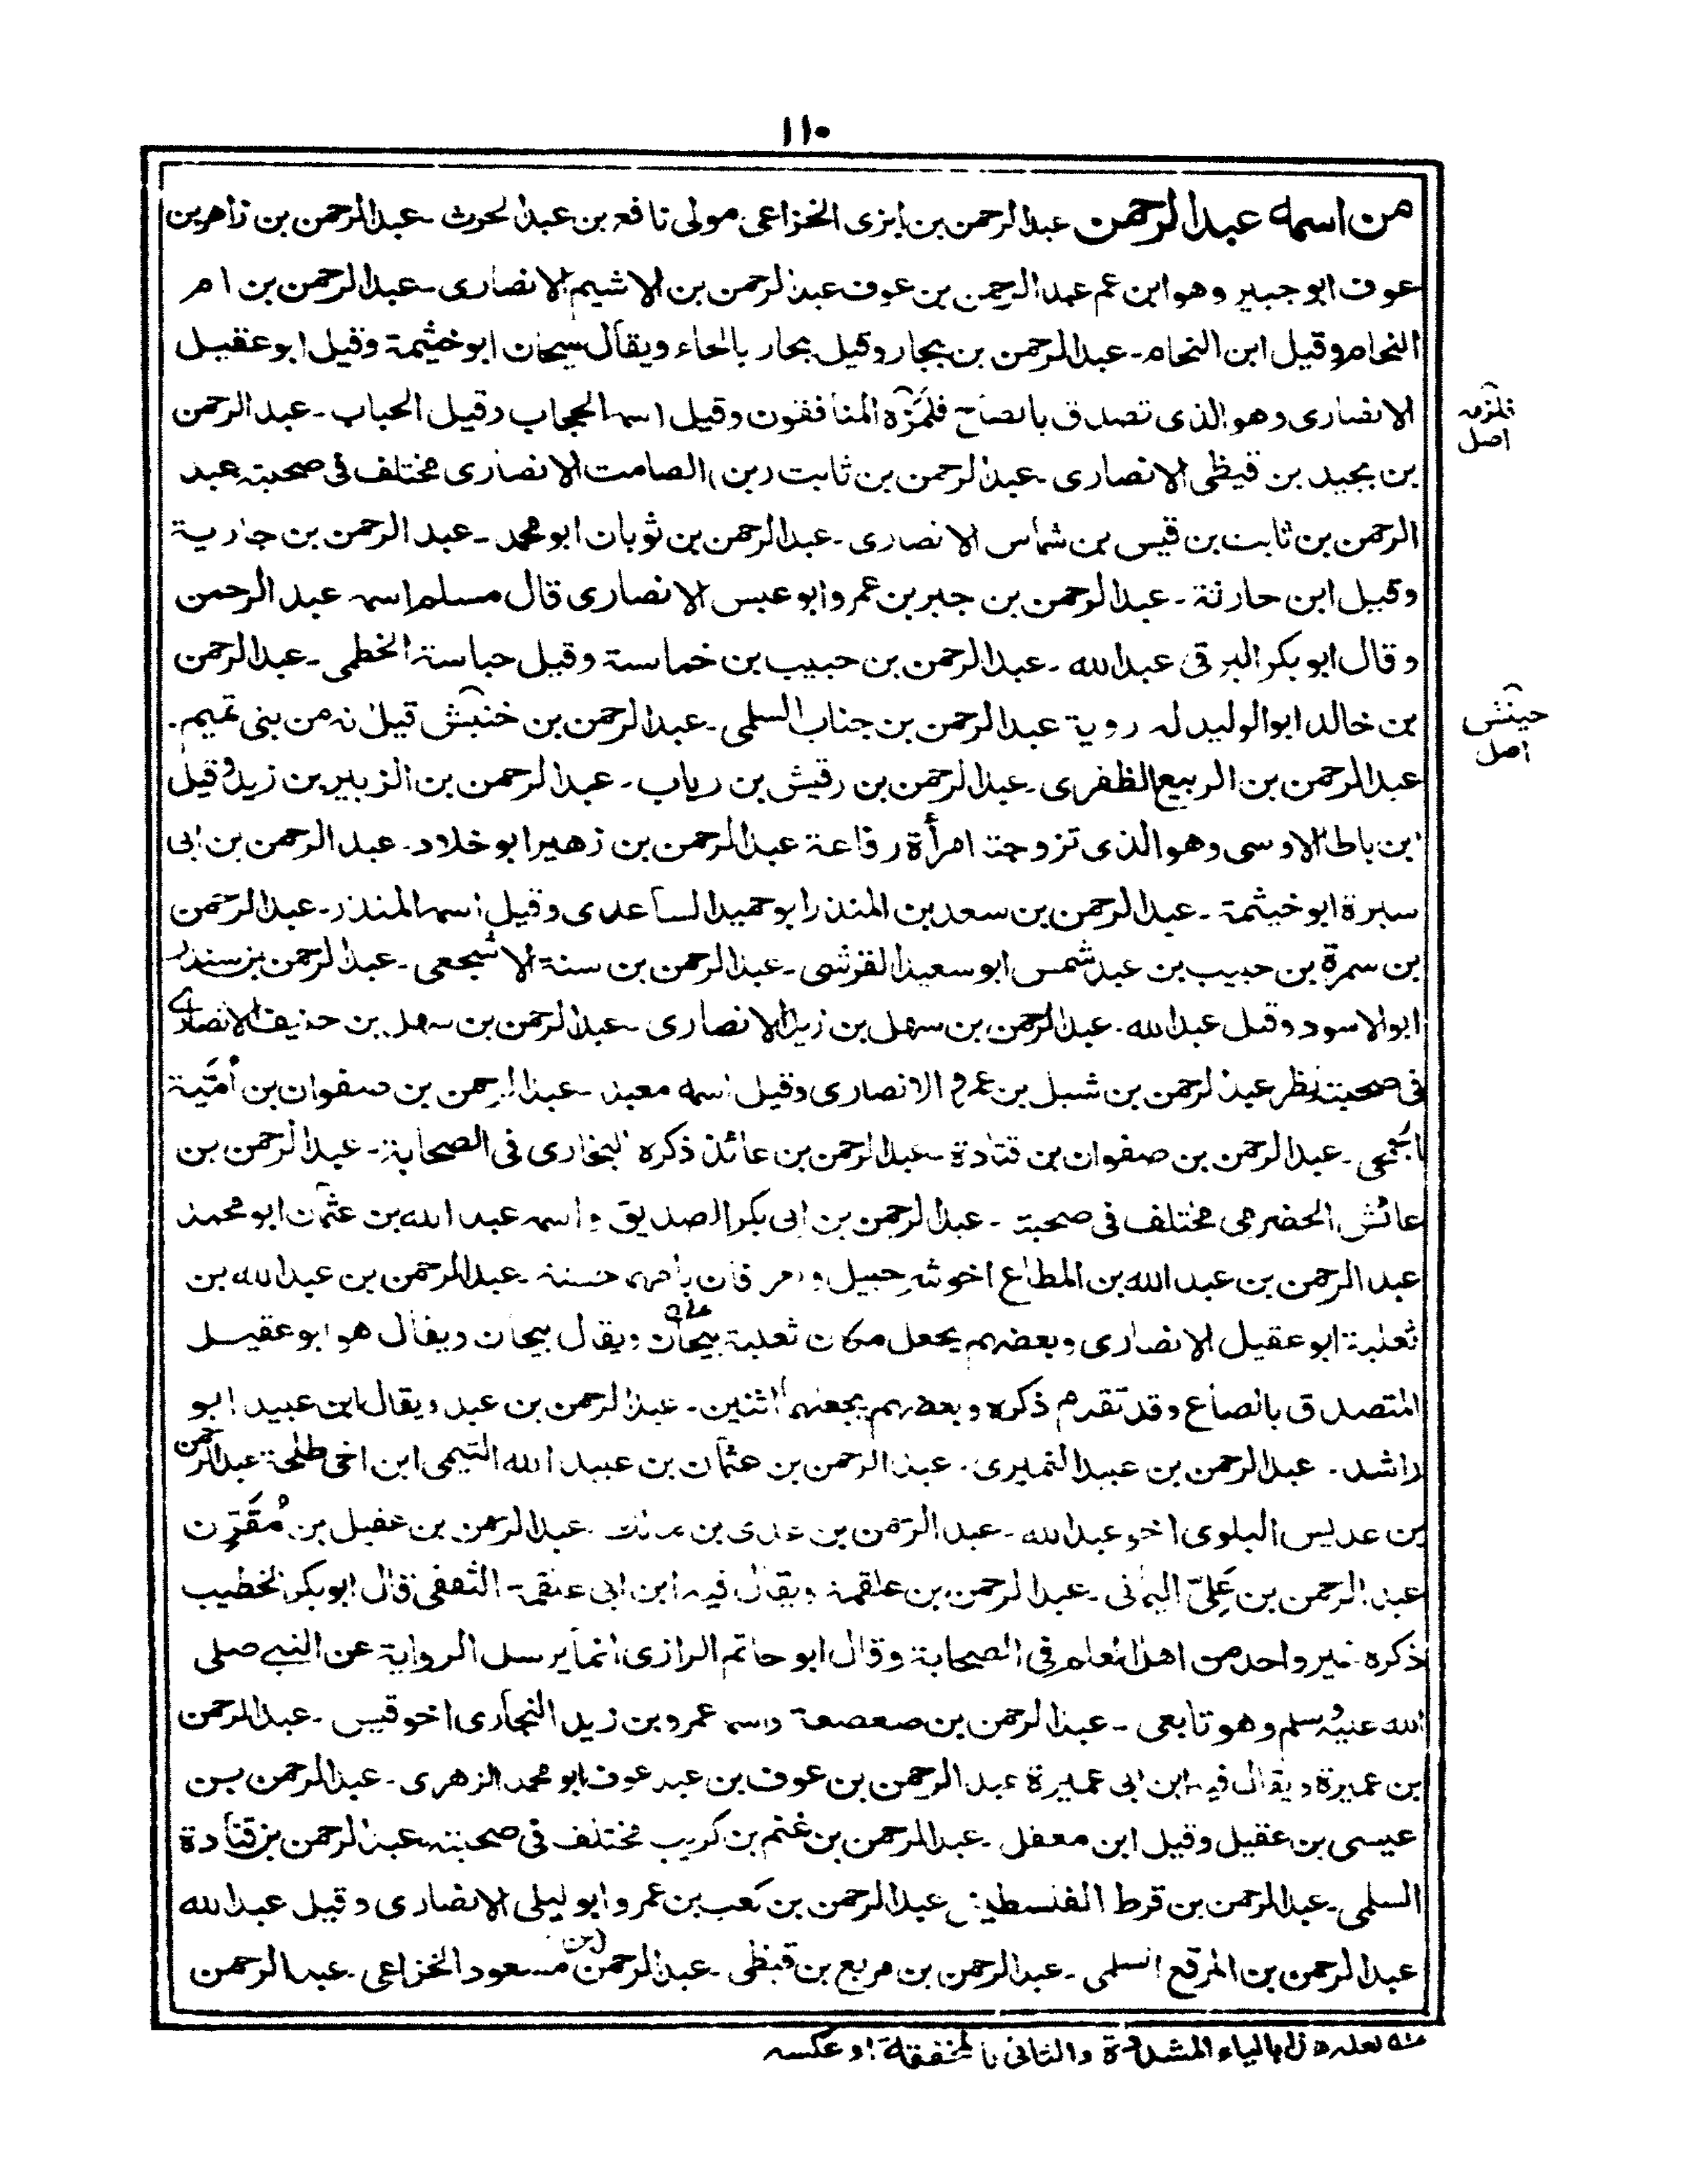 ١١٠
من اسمه عبد الرحمن عبد الرحمن بن ابزى الخزاعى مولى نافع بن عبد الحرث ـ عبد الرحمن بن زاهر بن
عوف ابو جبير وهو ابن عم عبد الرحمن بن عوف عبد الرحمن بن الاشيم الانصارى ـ عبد الرحمن بن ام
النحام وقيل ابن النحام ـ عبد الرحمن بن بجار وقيل بحار بالحاء ويقال سيحان ابو خيثمة وقيل ابو عقيل
الانصارى وهو الذى تصدق بالصاع فلمزه المنافقون وقيل اسمه الحجاب وقيل الحباب ـ عبد الرحمن
فلمزه اصل
بن بجيد بن قيظى الانصارى ـ عبد الرحمن بن ثابت (بن) الصامت الانصارى مختلف فى صحبته عبد
الرحمن بن ثابت بن قيس بن شماس الانصارى ـ عبد الرحمن بن ثوبان ابو محمد ـ عبد الرحمن بن جارية
وقيل ابن حارثة ـ عبد الرحمن بن جبر بن عمرو ابو عبس الانصارى قال مسلم اسمه عبد الرحمن
وقال ابو بكر البرقى عبد الله ـ عبد الرحمن بن حبيب بن خماسة وقيل حباسة الخطمى ـ عبد الرحمن
بن خالد ابو الوليد له روية عبد الرحمن بن جناب السلمى ـ عبد الرحمن بن خنبش قيل انه من بنى تميم ـ
حينش اصل
عبد الرحمن بن الربيع الظفرى ـ عبد الرحمن بن رقيش بن رياب ـ عبد الرحمن بن الزبير بن زيد وقيل
ابن باطا الاوسى وهو الذى تزوجته امرأة رفاعة عبد الرحمن بن زهير ابو خلاد ـ عبد الرحمن بن ابى
سبرة ابو خيثمة ـ عبد الرحمن بن سعد بن المنذر ابو حميد الساعدى وقيل اسمه المنذر ـ عبد الرحمن
بن سمرة بن حبيب بن عبد شمس ابو سعيد القرشى ـ عبد الرحمن بن سنة الاشجعى ـ عبد الرحمن بن سندر
ابو الاسود وقيل عبد الله ـ عبد الرحمن بن سهل بن زيد الانصارى ـ عبد الرحمن بن سهل بن حنيف الانصارى
فى صحبته نظر عبد الرحمن بن شبل بن عمرو الانصارى وقيل اسمه معبد ـ عبد الرحمن بن صفوان بن أُمَيّة
الجمحى ـ عبد الرحمن بن صفوان بن قتادة ـ عبد الرحمن بن عائذ ذكره البخارى فى الصحابة ـ عبد الرحمن بن
عائش الحضرمى مختلف فى صحبته ـ عبد الرحمن بن ابى بكر الصديق واسمه عبد الله بن عثمان ابو محمد
عبد الرحمن بن عبد الله بن المطاع اخو شرحبيل و يعرفان بامهما حسنة ـ عبد الرحمن بن عبد الله بن
ثعلبة ابو عقيل الانصارى وبعضهم يجعل مكان ثعلبة بيحان ويقال بيحان ويقال هو ابو عقيل
المتصدق بالصاع وقد تقدم ذكره وبعضهم يجعلهما اثنين ـ عبد الرحمن بن عبد ويقال ابن عبيد ابو
راشد ـ عبد الرحمن بن عبيد النميرى ـ عبد الرحمن بن عثمان بن عبيد الله التيمى ابن اخى طلحة عبد الرحمن
بن عديس البلوى اخو عبد الله ـ عبد الرحمن بن عدى بن ـ عبد الرحمن بن عقيل بن مُقَرِّن
عبد الرحمن بن عَلِىّ اليمانى ـ عبد الرحمن بن علقمة ويقال فيه ابن ابى علقمة الثقفى قال ابو بكر الخطيب
ذكره غير واحد من اهل العلم فى الصحابة وقال ابو حاتم الرازى انما يرسل الرواية عن النبى صلى
الله عليه وسلم وهو تابعى ـ عبد الرحمن بن صعصعة واسمه عمرو بن زيد النجارى اخو قيس ـ عبد الرحمن
بن عميرة ويقال فيه ابن ابى عميرة عبد الرحمن بن عوف بن عبد عوف ابو محمد الزهرى ـ عبد الرحمن بن
عيسى بن عقيل وقيل ابن معقل ـ عبد الرحمن بن غنم بن كريب مختلف فى صحبته عبد الرحمن بن قتادة
السلمى ـ عبد الرحمن بن قرط الفلسطينى عبد الرحمن بن كعب بن عمرو ابو ليلى الانصارى وقيل عبد الله
عبد الرحمن بن المرقع السلمى ـ عبد الرحمن بن مربع بن قيظى ـ عبد الرحمن (بن) مسعود الخزاعى ـ عبد الرحمن
لعله بالياء المشددة والثانى بالمخففة او عكسه